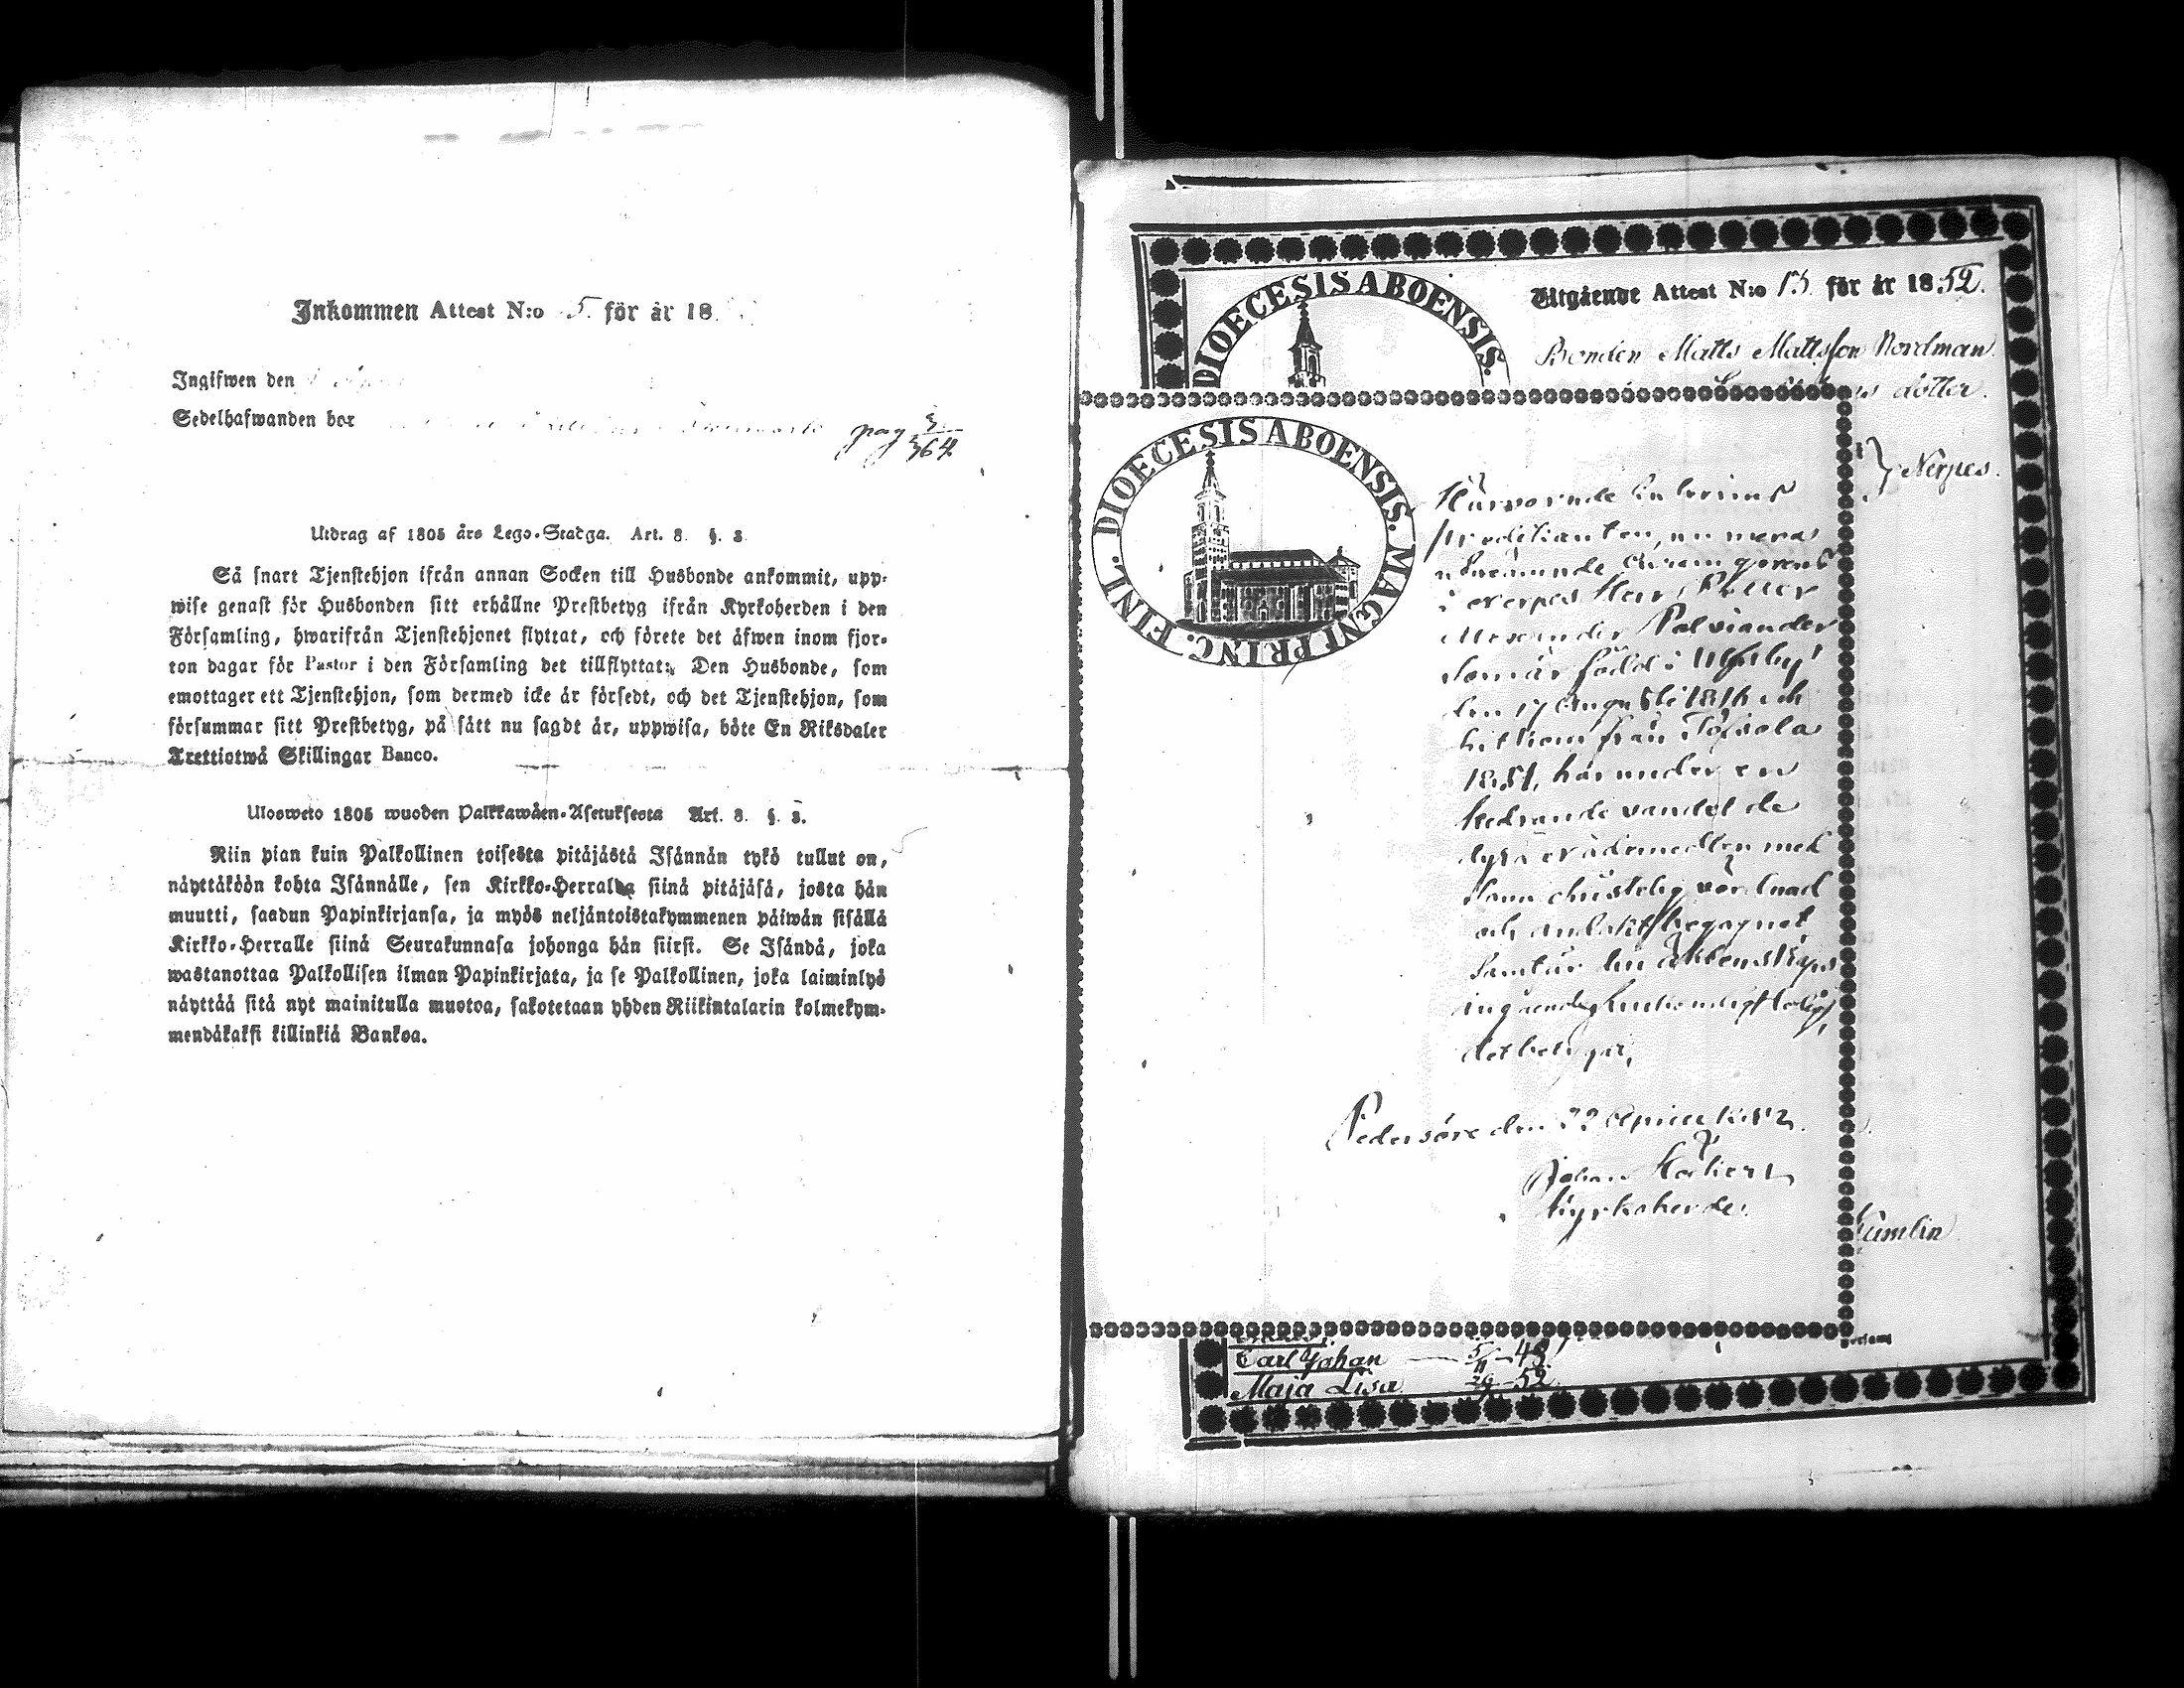 Inkommen Attest N:o 5. för år 18
Ingifwen den
Sedelhafwanden bor
pag 364
Utdrag af 1805 års Lego-Stadga. Art. 8. §. 3.
Så snart Tjenstehjon ifrån annan Socken till Husbonde ankommit, upp-
wise genast för Husbonden sitt erhållne Prestbetyg ifrån Kyrkoherden i den
Församling, hwarifrån Tjenstehjonet flyttat, och förete det åfwen inom fjor-
ton dagar för Pastor i den Församling det tillflyttat. Den Husbonde, som
emottager ett Tjenstehjon, som dermed icke är försedt, och det Tjenstehjon, som
försummar sitt Prestbetyg, på sått nu sagdt är, uppwisa, böte En Riksdaler
Trettiotwå Skillingar Banco.
Ulosweto 1805 wuoden Palkkawåen-Asetuksesta Art. 8. §. 3.
Niin pian kuin Palkollinen toisesta pitåjåstå Isånnån tykö tullut on,
nåyttåköön kohta Isånnålle, sen Kirkko-Herralda siinå pitåjåså, josta hån
muutti, saadun Papinkirjansa, ja myös neljåntoistakymmenen påiwån sisållå
Kirkko-Herralle siinå Seurakunnasa johonga hån siirsi. Se Isåndå, joka
wastanottaa Palkollisen ilman Papinkirjata, ja se Palkollinen, joka laiminlyö
nåyttåå sitå nyt mainitulla muotoa, sakotetaan yhden Riikintalarin kolmekym-
mendåkaksi killinkiå Bankoa.
DIOECESIS ABOENSIS.
Utgående Attest N:o 13. för år 1852.
Bonden Matts Mattsson Nordman
dotter.
Nerpes.
DIOECESIS ABOENSIS. MAGNI PRINC. FINL.
Härvarande
predikanten, nu mera
utnämnde
i Nerpes Herr Petter
Alexander Palviander
som är född i Ulfsby
den 17 Augusti 1816 och
hitkom från Töfsala
1851, har under en
hedrande vandel de
dyra nådemedlen med
sann christelig vördnad
och andakt begagnat
samt är till äktenskaps
ingående
det betygar,
Pedersöre den 22 April 1852.
Johan
Kyrkoherde.
Carl Johan 5/11 48.
Maja Lisa 52.